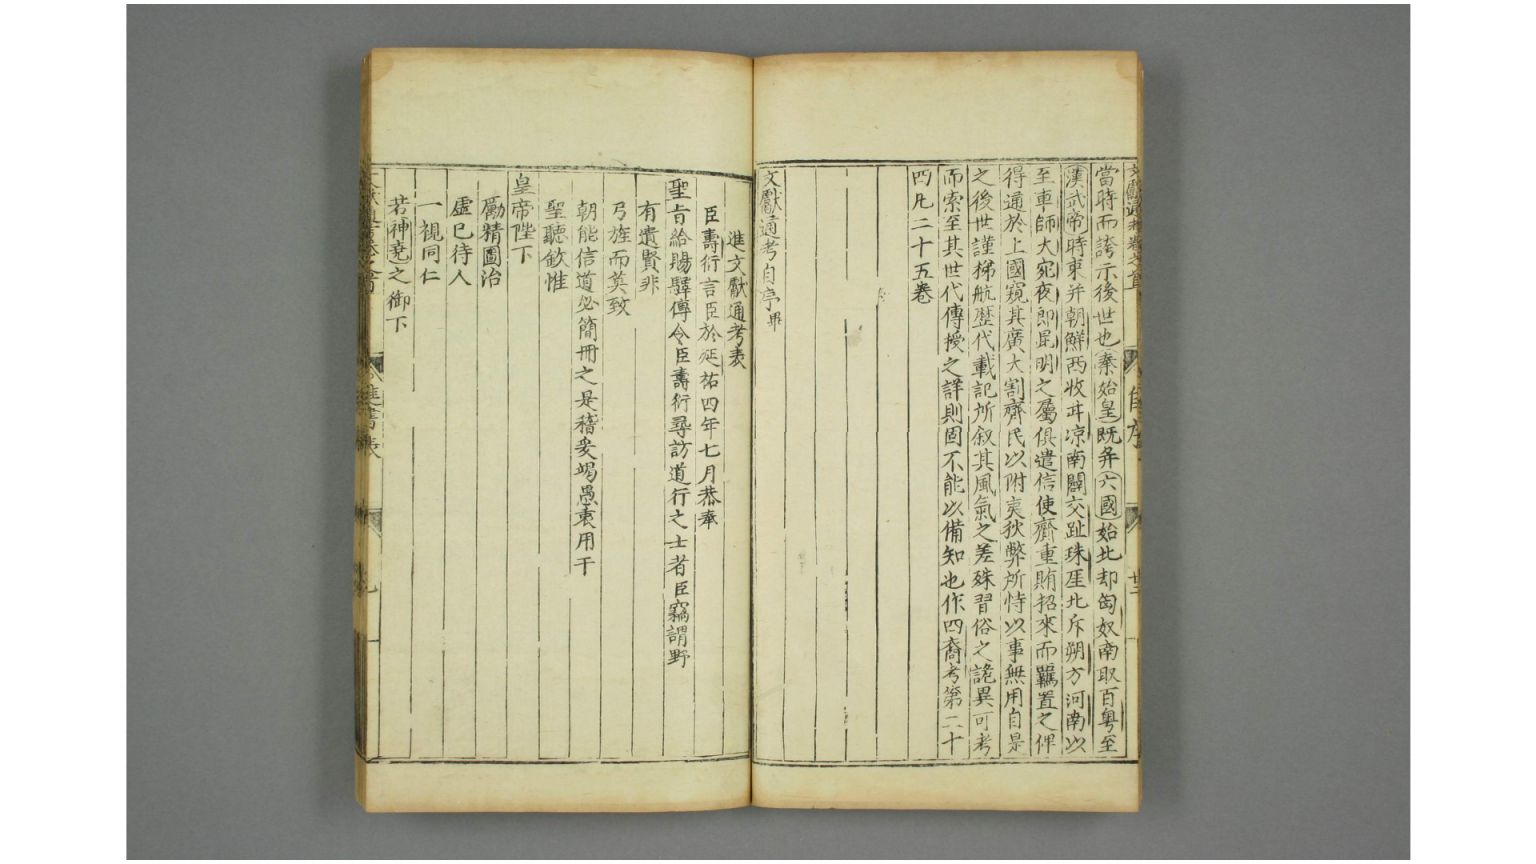 當時而誇示後世也秦始皇既并六國始北却匈奴南取百粤至
漢武帝時東并朝鮮西收河凉南闢交趾珠厓北斥朔方河南以
至車師大宛夜郎昆明之屬俱遣信使齎重賄招來而羈置之俾
得通於上國窺其廣大割齊民以附夷狄弊所恃以事無用自是
之後世謹梯航歷代載記所叙其風氣之差殊習俗之詭異可考
而索至其世代傳授之詳則固不能以備知也作四裔考第二十
四凡二十五卷
文獻通考自序畢
進文獻通考表
臣壽衍言臣於延祐四年七月恭奉
聖旨給賜驛傳令臣壽衍尋訪道行之士者臣竊謂野
有遺賢非
弓旌而莫致
朝能信道必簡冊之是稽爰竭愚衷用干
聖聽欽惟
皇帝陛下
勵精圖治
虛己待人
一視同仁
若神堯之御下
進書表